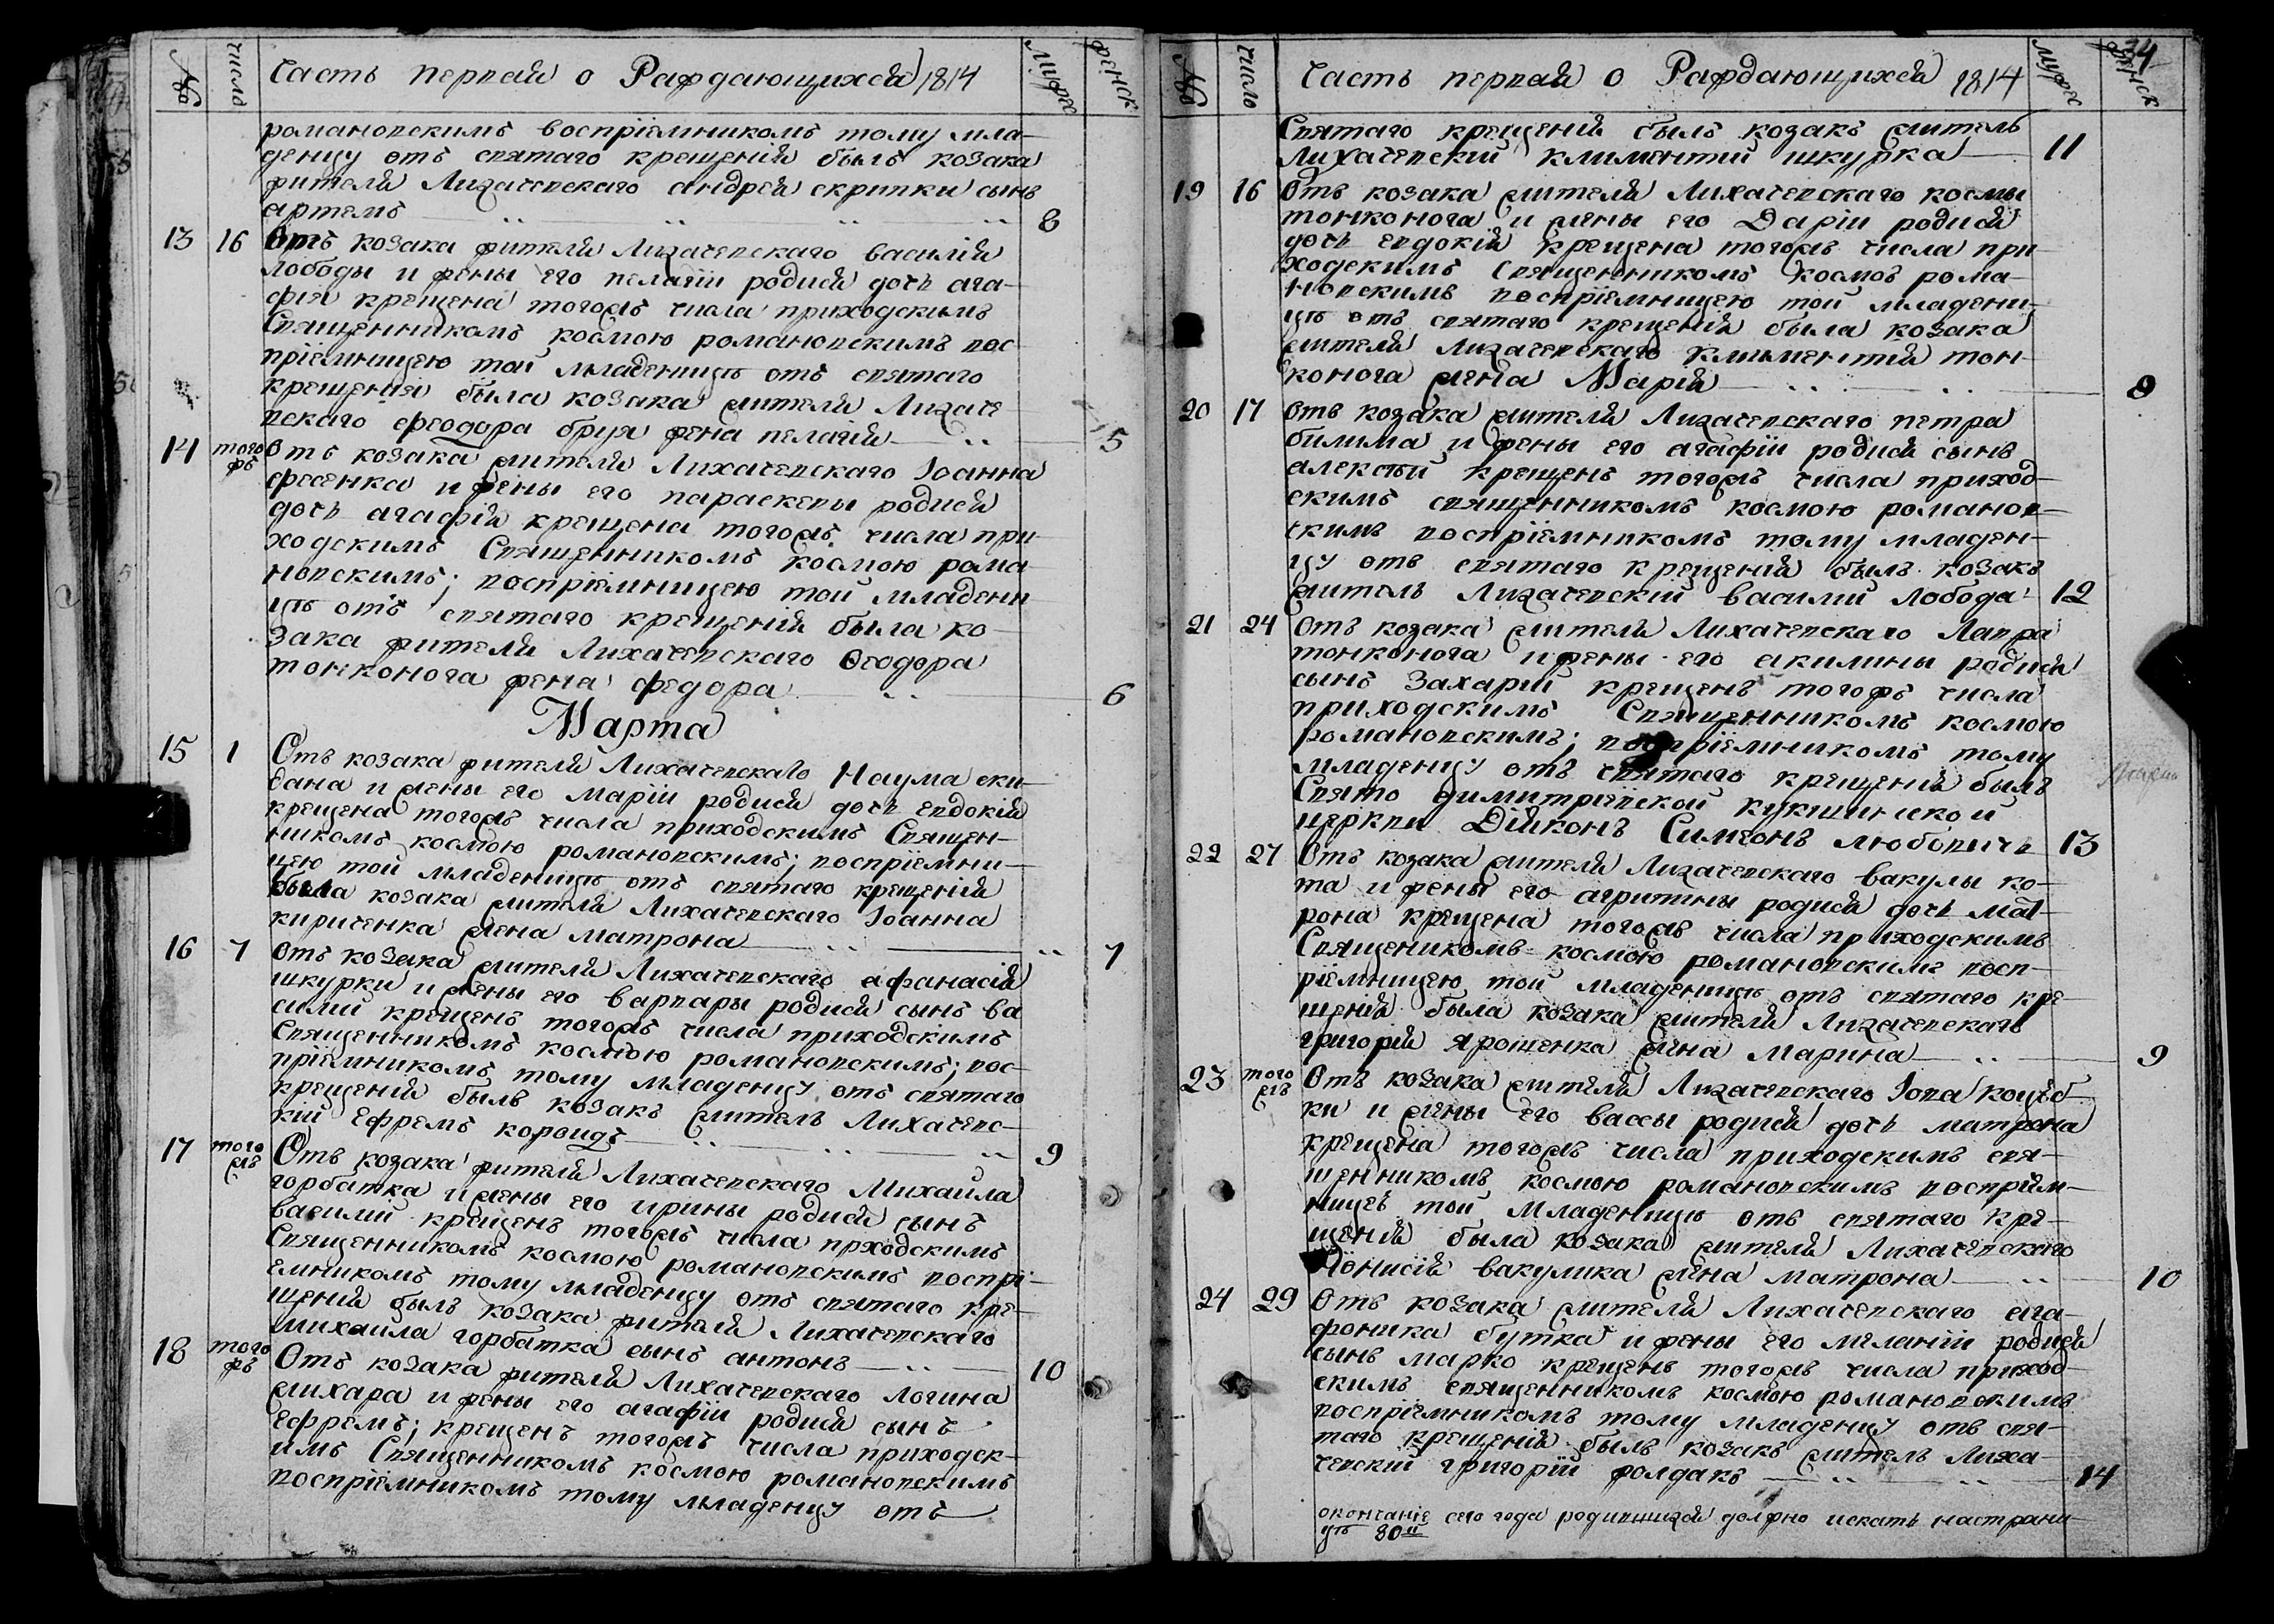 № число Часть первая о Раждающихся 1814 Мужес женск
романовскимъ воспріемникомъ тому мла-
денцу отъ святаго крещенія былъ козака
жителя Лихачевскаго андрея скрипки сынъ
артемъ 8
13 16 Отъ козака жителя Лихачевскаго василія
лободы и жены его пелагіи родися дочь ага-
фія крещена тогожъ числа приходскимъ
Священникомъ космою романовскимъ вос-
пріемницею той младеницѣ отъ святаго
крещения была козака жителя Лихаче
вскаго феодора бруя жена пелагія 5
14 того жъ Отъ козака жителя Лихачевскаго Іоанна
фесенка и жены его параскевы родися
дочь агафія крещена тогожъ числа при-
ходскимъ Священникомъ космою рома
новскимъ; воспріемницею той младени
цѣ отъ святаго крещенія была ко-
зака жителя Лихачевскаго Феодора
тонконога жена федора 6
Марта
15 1 Отъ козака жителя Лихачевскаго Наума ски-
дана и жены его маріи родися дочь евдокія
крещена тогожъ числа приходскимъ Священ-
никомъ космою романовскимъ; воспріемни-
цею той младеницѣ отъ святаго крещенія
была козака жителя Лихачевскаго Іоанна
кириченка жена матрона 7
16 7 Отъ козака жителя Лихачевскаго афанасія
шкурки и жены его варвары родися сынъ ва
силій крещенъ тогожъ числа приходскимъ
Священникомъ космою романовскимъ; вос-
пріемникомъ тому младенцу отъ святаго
крещенія былъ козакъ житель Лихачевс-
кій Ефремъ 9
17 того жъ Отъ козака жителя Лихачевскаго Михаила
горбатка и жены его ирины родися сынъ
василій крещенъ тогожъ числа прходскимъ
Священникомъ космою романовскимъ воспрі-
емникомъ тому младенцу отъ святаго кре-
щенія былъ козака жителя Лихачевскаго
михаила горбатка сынъ антонъ 10
18 того жъ Отъ козака жителя Лихачевскаго Логина
жихара и жены его агафіи родися сынъ
Ефремъ; крещенъ тогожъ числа приходск-
имъ Священникомъ космою романовскимъ
воспріемникомъ тому младенцу отъ
34
№ число Часть первая о Раждающихся 1814 Мужес женск
Святаго крещенія былъ козакъ житель
Лихачевскій климентій шкурка 11
19 16 Отъ козака жителя Лихачевскаго космы
тонконога и жены его Даріи родися
дочь евдокія крещена тогожъ числа при
ходскимъ Священникомъ космоъ рома-
новскимъ воспріемницею той младени-
цѣ отъ святаго крещенія была козака
жителя Лихачевскаго климентія тон-
конога жена Марія 8
20 17 Отъ козака жителя Лихачевскаго петра
билыма и жены его агафіи родися сынъ
алексѣй крещенъ тогожъ числа приход-
скимъ священникомъ космою романов-
скимъ воспріемникомъ тому младен-
цу отъ святаго крещенія былъ козакъ
житель Лихачевскій василій лобода 12
21 24 Отъ козака жителя Лихачевскаго Лавра
тонконога и жены его акилины родися
сынъ Захарій крещенъ тогожъ числа
приходскимъ Священникомъ космою
романовскимъ; воспріемникомъ тому
младенцу отъ святаго крещенія былъ
Свято димитріевской кукшинской
церкви Діяконъ Симеонъ любовичъ 13
22 27 Отъ козака жителя Лихачевскаго вакулы ко-
та и жены его агрипины родися дочь мат-
рона крещена тогожъ числа приходскимъ
Священикомъ космою романовскимъ восп-
ріемницею той младеницѣ отъ святаго кре
щенія была козака жителя Лихачевскаго
григорія ярошенка жена Марина 9
23 того жъ Отъ козака жителя Лихачевскаго Іова коцюб
ки и жены его вассы родися дочь матрона
крещена тогожъ числа приходскимъ свя-
щенникомъ космою романовскимъ воспріем-
ницеъ той младеницѣ отъ святаго кре-
щенія была козака жителя Лихачевскаго
Діонисія вакулика жена матрона 10
24 29 Отъ козака жителя Лихачевскаго ага-
фоника бутка и жены его меланіи родися
сынъ марко крещенъ тогожъ числа приход-
скимъ священникомъ космою романовскимъ
воспріемникомъ тому младенцу отъ свя-
таго крещенія былъ козакъ житель Лиха-
чевскій григорій жолдакъ 14
окончаніе сего года родившихся должно искать на страни
цѣ 80й